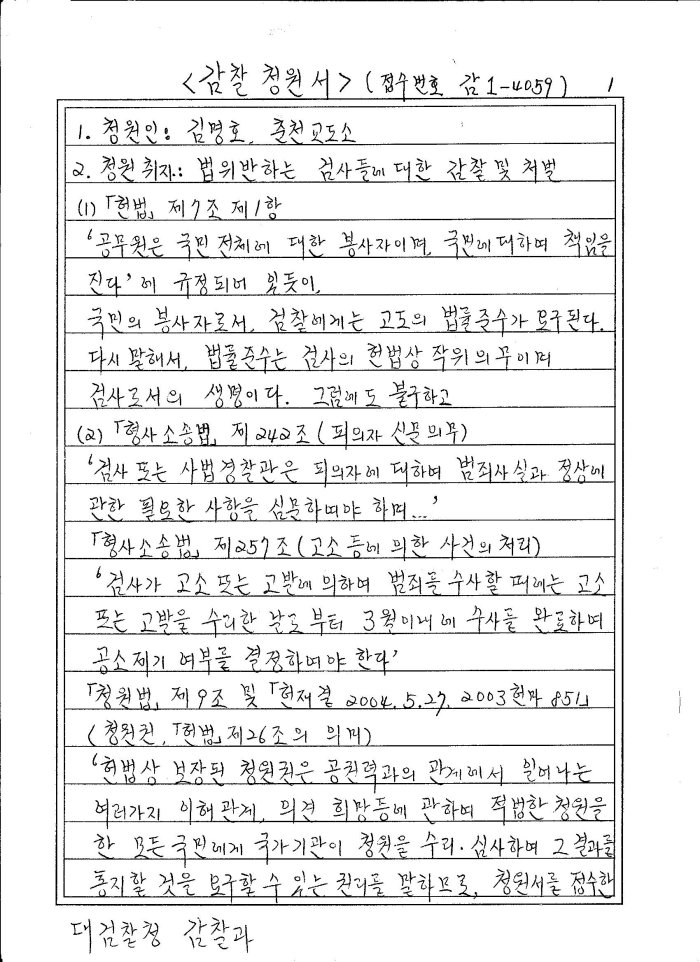 <감찰 청원서> (접수번호 감1-4059) 1
1. 청원인: 김명호, 춘천교도소
2. 청원취지: 법위반하는 검사들에 대한 감찰 및 처벌
(1) 「헌법」 제7조 제1항
'공무원은 국민전체에 대한 봉사자이며, 국민에 대하여 책임을
진다'에 규정되어 있듯이,
국민의 봉사자로서, 검찰에게는 고도의 법률준수가 요구된다.
다시 말해서, 법률준수는 검사의 헌법상 작위의무이며
검사로서의 생명이다. 그럼에도 불구하고
(2) 「형사소송법」 제242조 (피의자 신문의무)
'검사 또는 사법경찰관은 피의자에 대하여 범죄사실과 정상에
관한 필요한 사항을 심문하여야 하며...'
「형사소송법」 제257조 (고소 등에 의한 사건의 처리)
'검사가 고소 또는 고발에 의하여 범죄를 수사할 때에는 고소
또는 고발을 수리한 날로부터 3월이내에 수사를 완료하여
공소제기 여부를 결정하여야 한다'
「청원법」 제9조 및 「헌재결 2004. 5. 27. 2003헌마 851」
(청원권, 「헌법」 제26조의 의미)
'헌법상 보장된 청원권은 공권력과의 관계에서 일어나는
여러가지 이해관계, 의견 희망등에 관하여 적법한 청원을
한 모든 국민에게 국가기관이 청원을 수리·심사하여 그 결과를
통지할 것을 요구할 수 있는 권리를 말하므로, 청원서를 접수한
대검찰청 감찰과